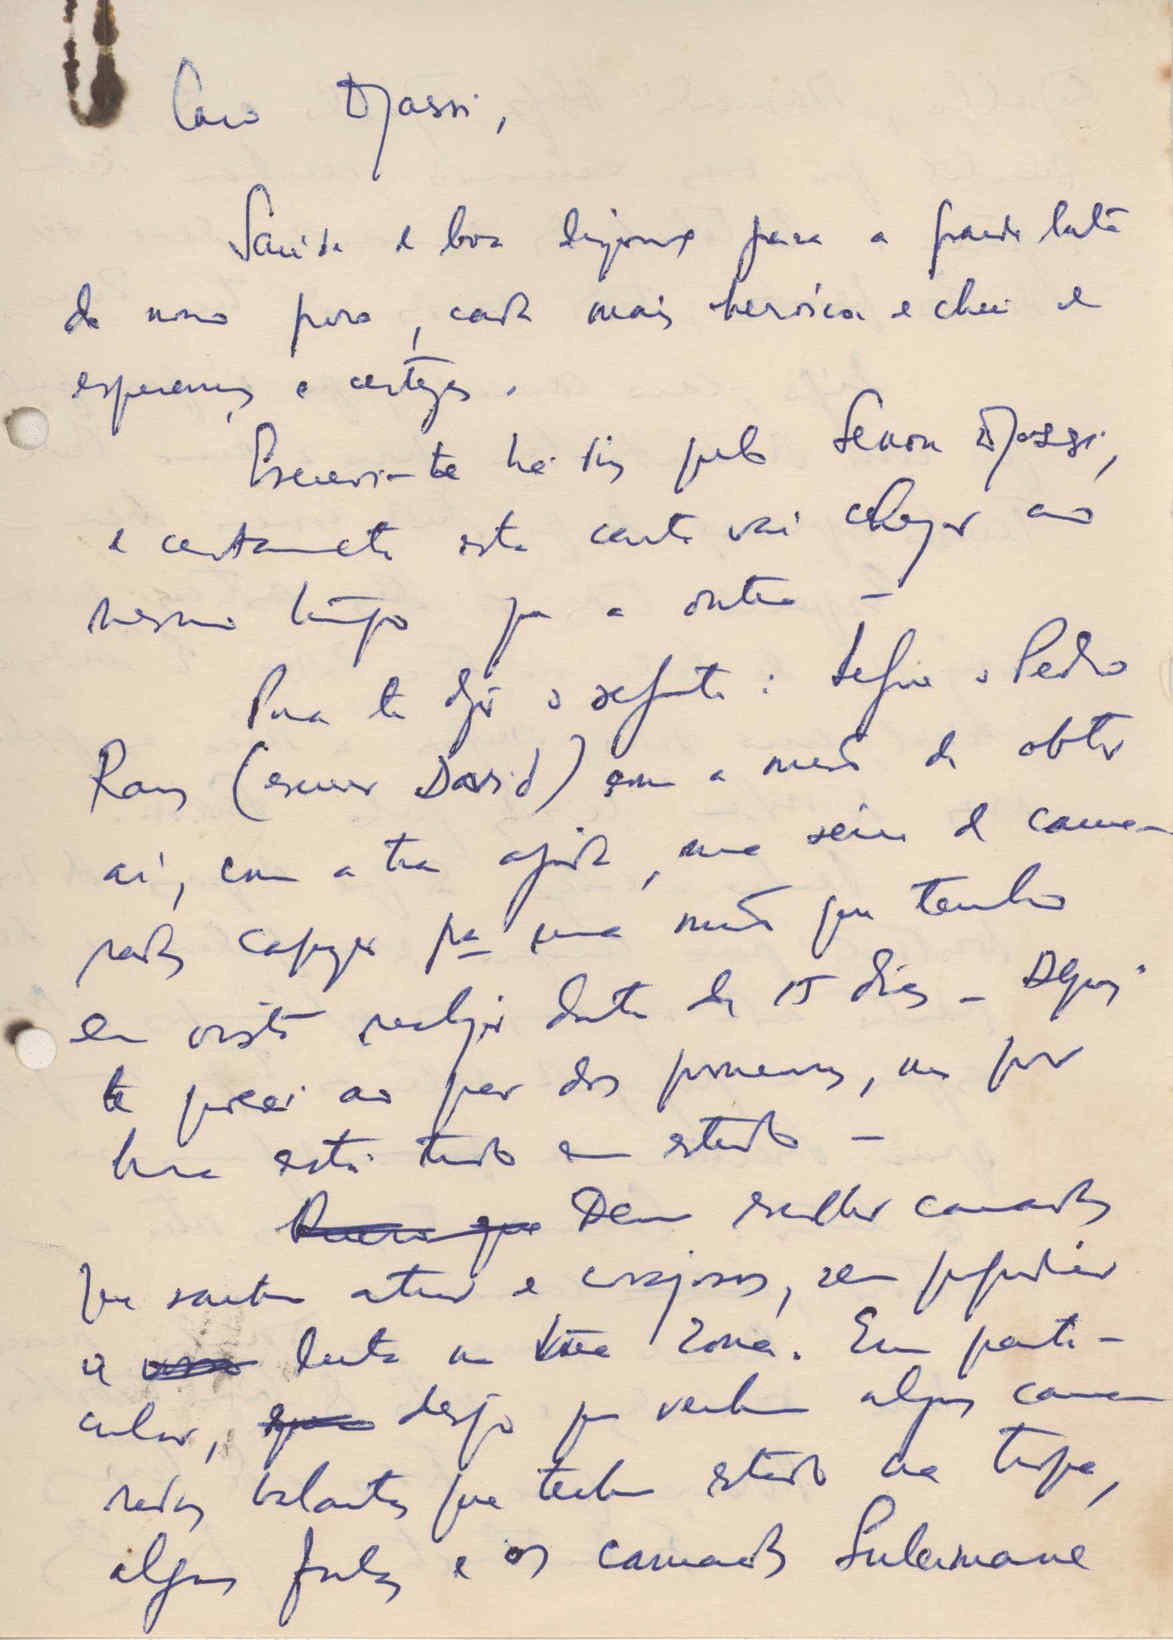 Caro Djassi,
Saúde e boa disposição para a grande luta
do nosso povo, cada mais heróica e cheia de
esperanças e certezas.
Escrevi-te há dias pelo Lenon Djassi,
e certamente esta carta vai chegar ao
mesmo tempo que a outra —
Para te dizer o seguinte: Segue o Pedro
Ramos (escrever David) com a missão de obter
aí, com a tua ajuda, uma série de cama-
radas capazes pa uma missão que tenho
em vista realizar dentro de 15 dias — Depois
te porei ao par dos pormenores, mas por
hora está tudo em estudo —
Deves escolher camaradas
que saibam atirar e corajosos, sem prejudicar
a luta na tua zona. Em parti-
cular, desejo que venham alguns cama
radas balantas que tenham estado na tropa,
alguns fulas e os camaradas Sulemane